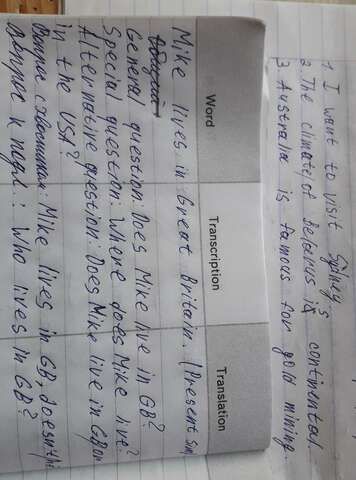 1. I want to visit Sydney
2. The climate of Belarus is continental.
3 Australia is famous for gold mining.
Word Transcription Translation
Mike lives in Great Britain. (Present Sim
General question: Does Mike live in GB?
Special question: Where does Mike live?
Alternative question: Does Mike live in GB or
in the USA?
Mike lives in GB, doesn't
Вопрос к подл: Who lives in GB?